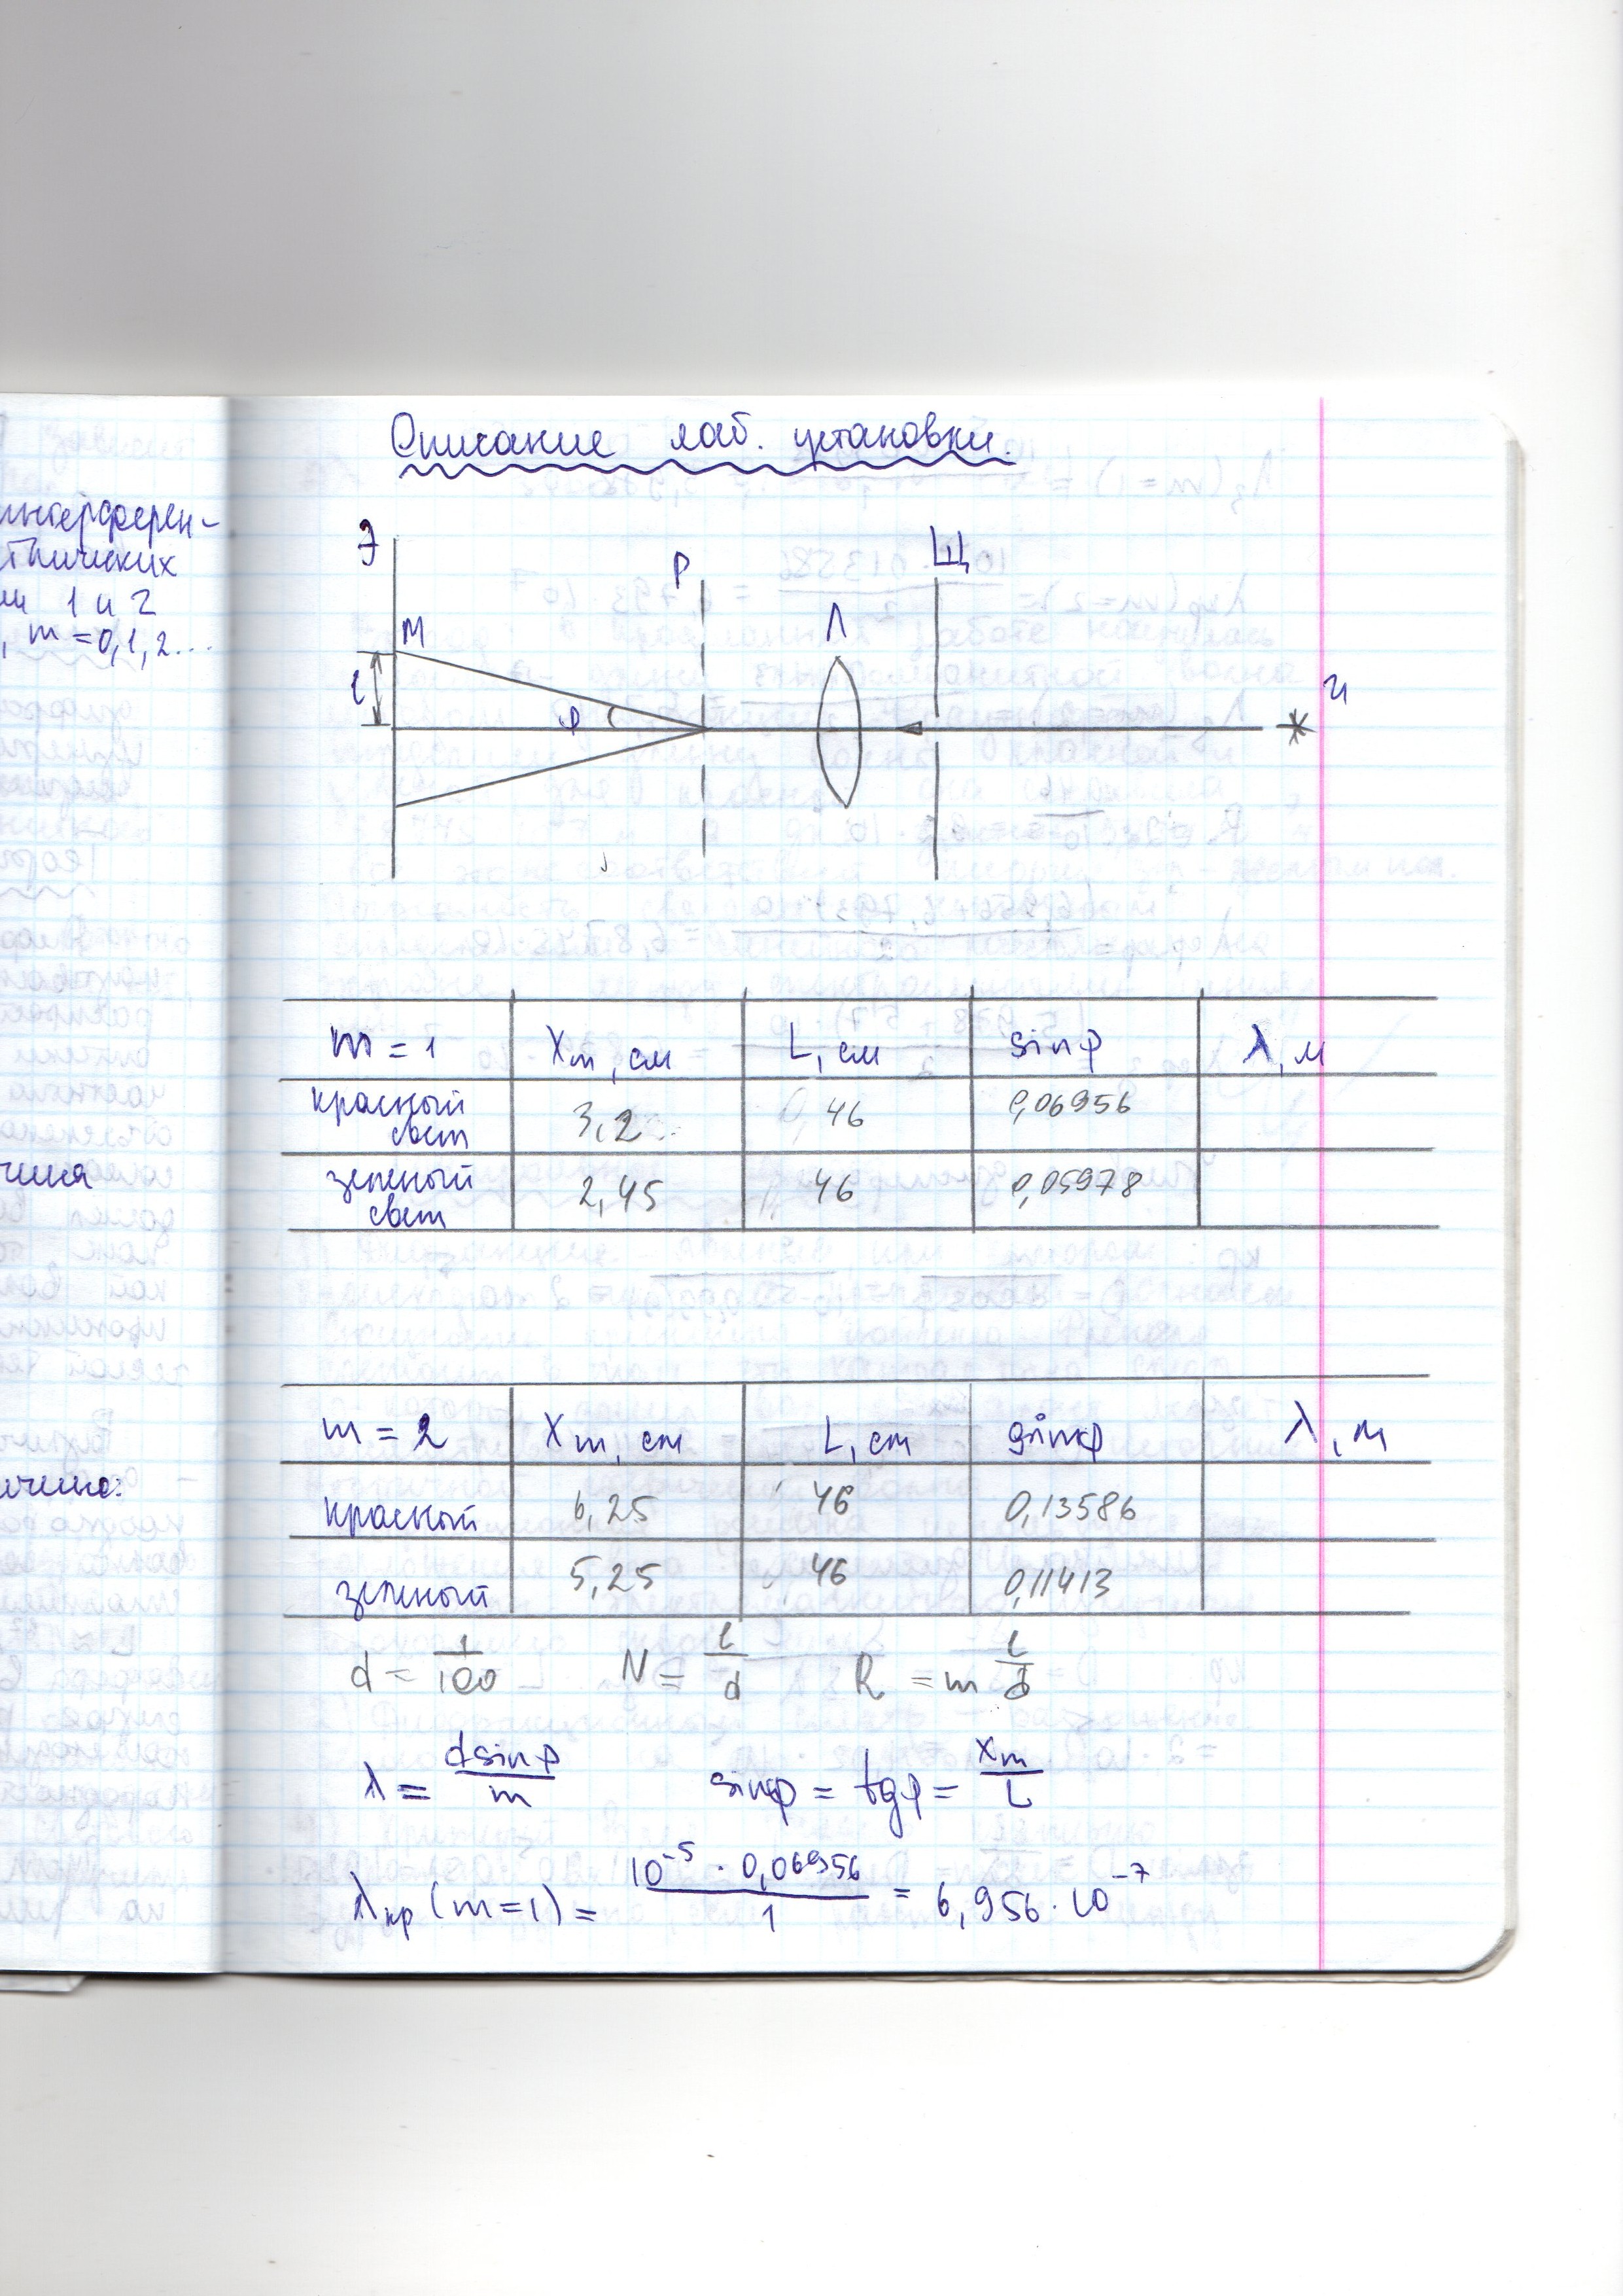 интерферен-
тических
ми 1 и 2
, m = 0,1,2...
Описание лаб. установки.
Э
P
Щ
M
Л
l
φ
И
m = 1 Xm, см L, см sinφ λ, м
красный свет 3,2 46 0,06956
зеленый свет 2,45 46 0,05978
чина:
m = 2 Xm, cm L, cm sinφ λ, м
красный 6,25 46 0,13586
зеленый 5,25 46 0,11413
d = 1/100 N = l/d R = m l/d
λ = dsinφ/m sinφ = tgφ = Xm/L
λкр (m=1) = 10⁻⁵ · 0,06956/1 = 6,956 · 10⁻⁷